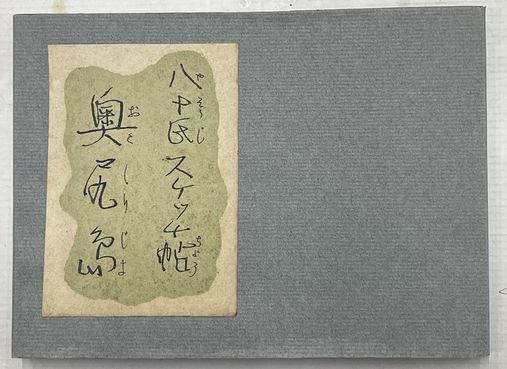 八十氏スケッチ帖
やそうじ
ちょう
奥尻島
おくしりじま